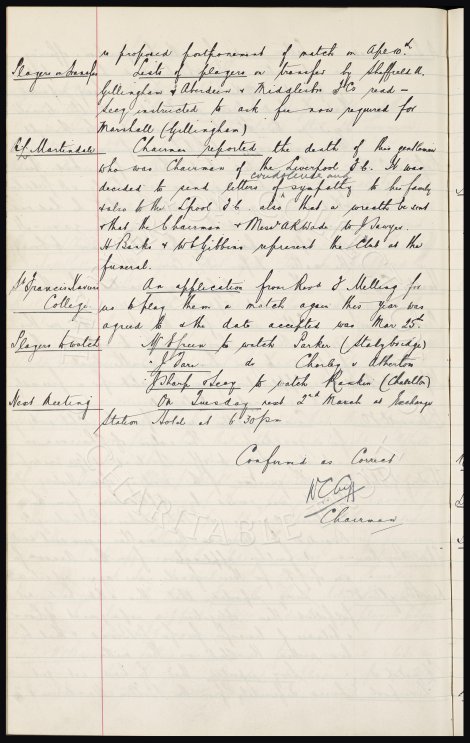 re proposed postponement of match on Apl 10th.
Players on transfer Lists of players on transfer by Sheffield U.
Gillingham & Aberdeen & Middlesbro F.Cs read –
Secy instructed to ask fee now required for
Marshall (Gillingham)
Martindale Chairman reported the death of this gentleman
who was Chairman of the Liverpool F.C. It was
condolence and
decided to send letters of sympathy to his family
& also to the L'pool F.C. also that a wreath be sent
& that the Chairman & Messrs A R Wade J Sawyer
H Banks & W C Gibbins represent the Club at the
funeral.
St Francis Xaviers An application from Revd F Melling for
College us to play them a match again this year was
agreed to & the date accepted was Mar 25th
Players to watch Mr Green to watch Parker (Stalybridge)
" J Fare do Chorley v Atherton
J Sharp & Secy to watch (Charlton)
Next Meeting On Tuesday next 2nd March at Exchange
Station Hotel at 6 30 pm
Confirmed as Correct
W C Cuff
Chairman
CHARITABLE